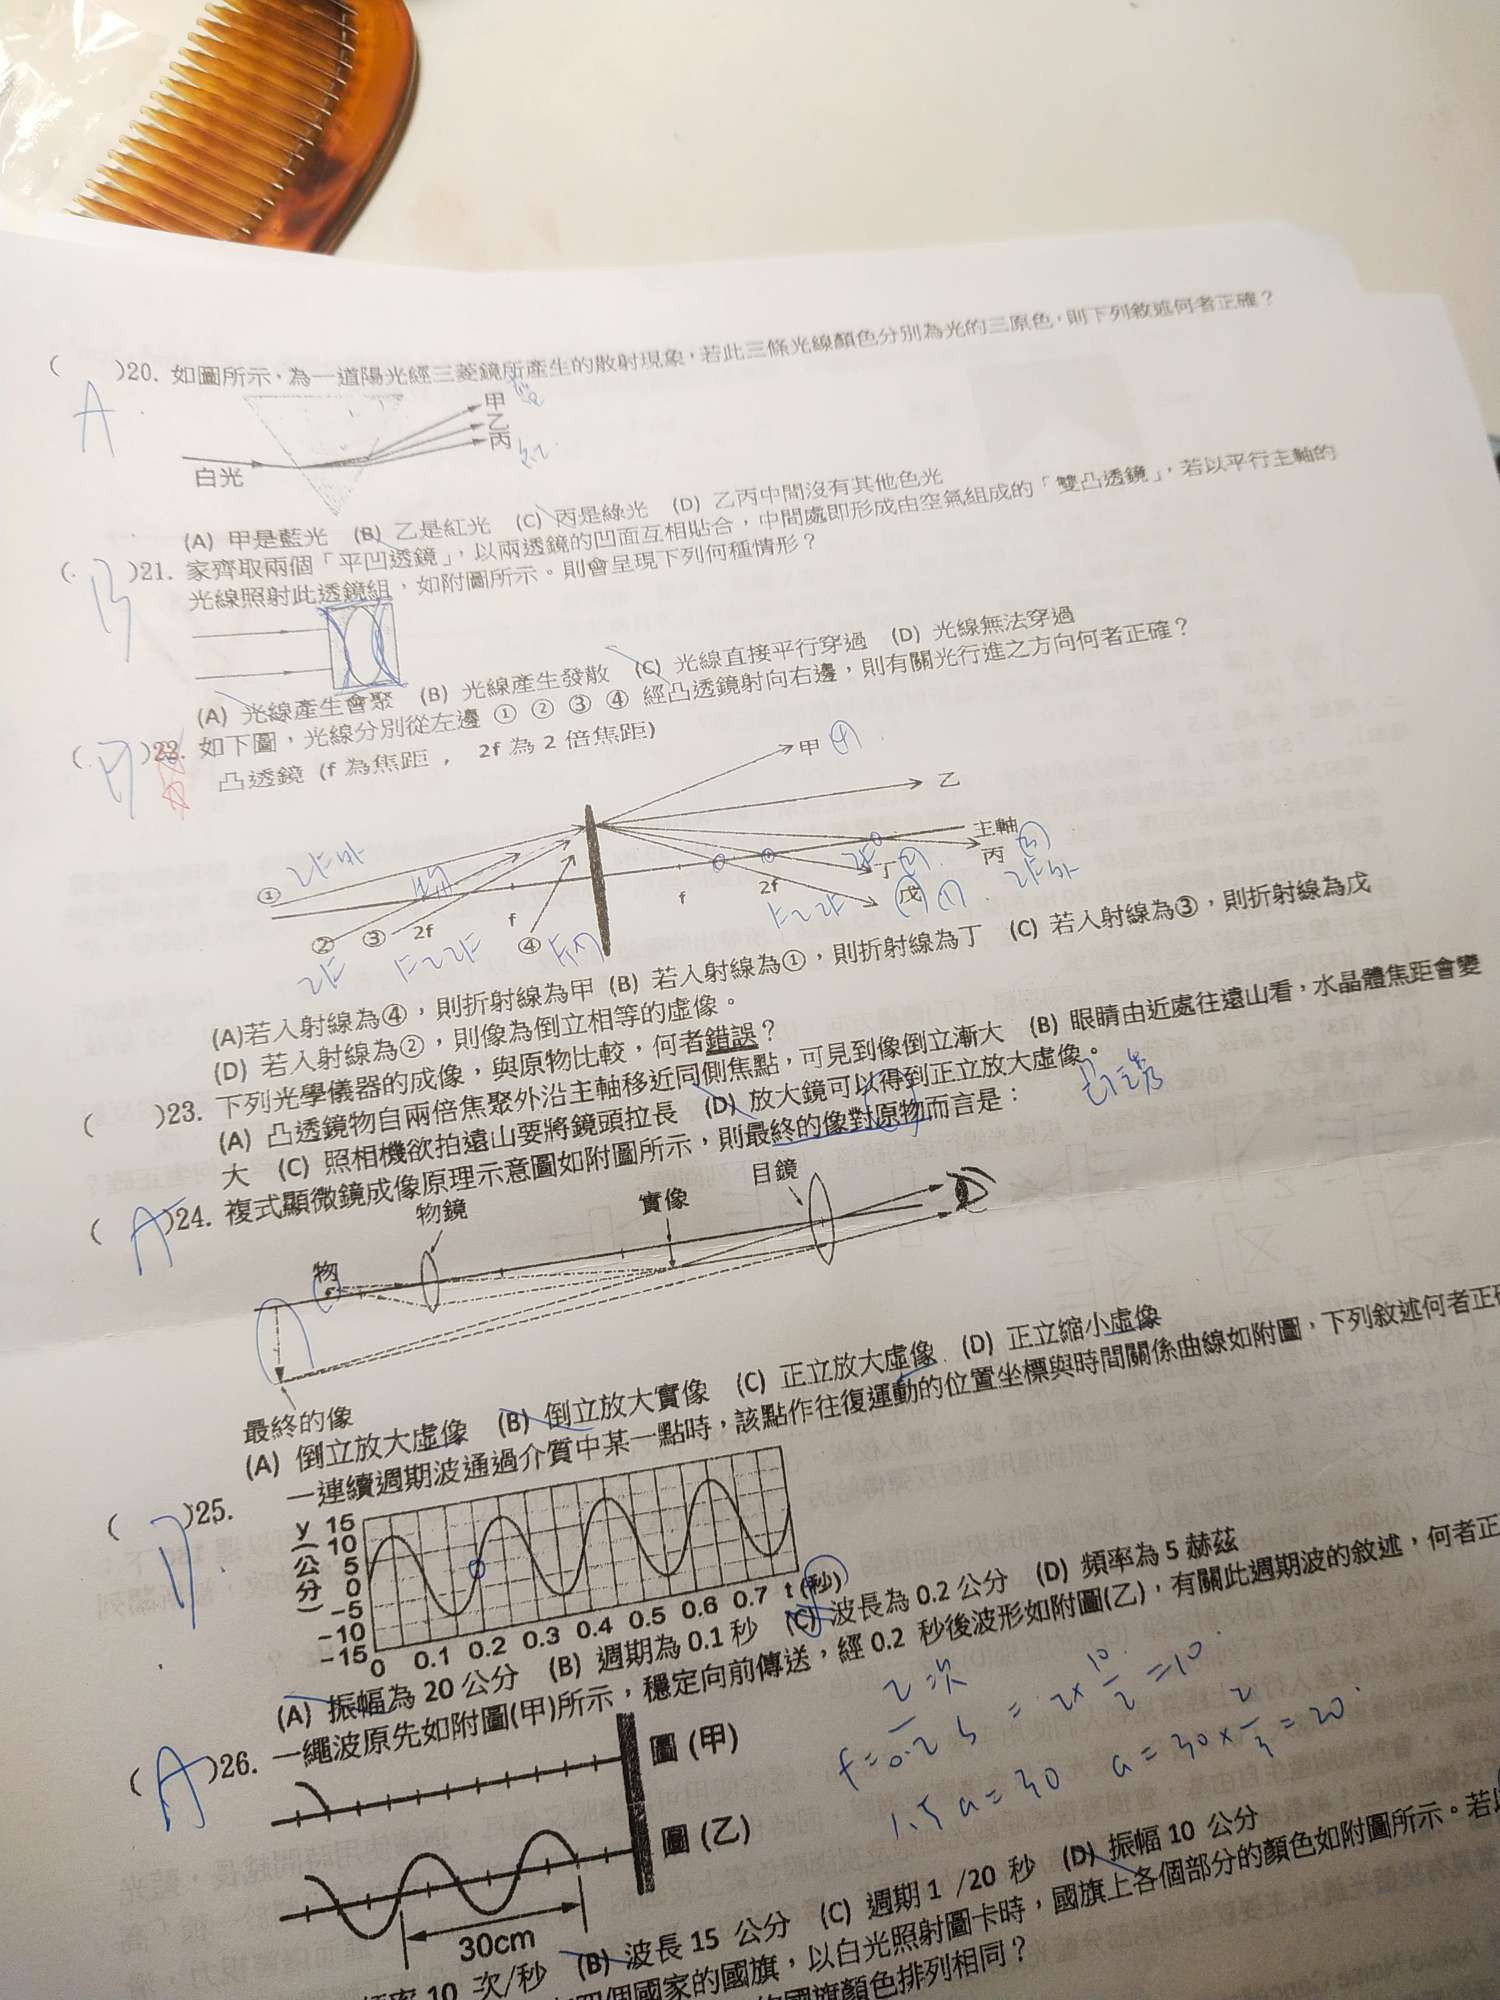 ( A )20. 如圖所示，為一道陽光經三菱鏡所產生的散射現象，若此三條光線顏色分別為光的三原色，則下列敘述何者正確？
甲
乙
丙
白光
(A) 甲是藍光 (B) 乙是紅光 (C) 丙是綠光 (D) 乙丙中間沒有其他色光
( B )21. 家齊取兩個「平凹透鏡」，以兩透鏡的凹面互相貼合，中間處即形成由空氣組成的「雙凸透鏡」，若以平行主軸的
光線照射此透鏡組，如附圖所示。則會呈現下列何種情形？
(A) 光線產生會聚 (B) 光線產生發散 (C) 光線直接平行穿過 (D) 光線無法穿過
( )22. 如下圖，光線分別從左邊 ① ② ③ ④ 經凸透鏡射向右邊，則有關光行進之方向何者正確？
凸透鏡 (f 為焦距， 2f 為 2 倍焦距)
甲
乙
主軸
丙
丁
戊
① ② ③ 2f f ④ f 2f
(A)若入射線為④，則折射線為甲 (B) 若入射線為①，則折射線為丁 (C) 若入射線為③，則折射線為戊
(D) 若入射線為②，則像為倒立相等的虛像。
( )23. 下列光學儀器的成像，與原物比較，何者錯誤？
(A) 凸透鏡物自兩倍焦聚外沿主軸移近同側焦點，可見到像倒立漸大 (B) 眼睛由近處往遠山看，水晶體焦距會變
大 (C) 照相機欲拍遠山要將鏡頭拉長 (D) 放大鏡可以得到正立放大虛像。
( A )24. 複式顯微鏡成像原理示意圖如附圖所示，則最終的像對原物而言是：
物
物鏡
實像
目鏡
最終的像
(A) 倒立放大虛像 (B) 倒立放大實像 (C) 正立放大虛像 (D) 正立縮小虛像
( )25. 一連續週期波通過介質中某一點時，該點作往復運動的位置坐標與時間關係曲線如附圖，下列敘述何者正
y(公分)
15
10
5
0
-5
-10
-15
0 0.1 0.2 0.3 0.4 0.5 0.6 0.7 t (秒)
(A) 振幅為 20 公分 (B) 週期為 0.1 秒 (C) 波長為 0.2 公分 (D) 頻率為 5 赫茲
( A )26. 一繩波原先如附圖(甲)所示，穩定向前傳送，經 0.2 秒後波形如附圖(乙)，有關此週期波的敘述，何者正
圖 (甲)
圖 (乙)
30cm
f = 2次/0.2 s = 2× 10/2 = 10
1.5 a = 30 a = 30× 2/3 = 20
率 10 次/秒 (B) 波長 15 公分 (C) 週期 1 /20 秒 (D) 振幅 10 公分
四個國家的國旗，以白光照射圖卡時，國旗上各個部分的顏色如附圖所示。若
的國旗顏色排列相同？